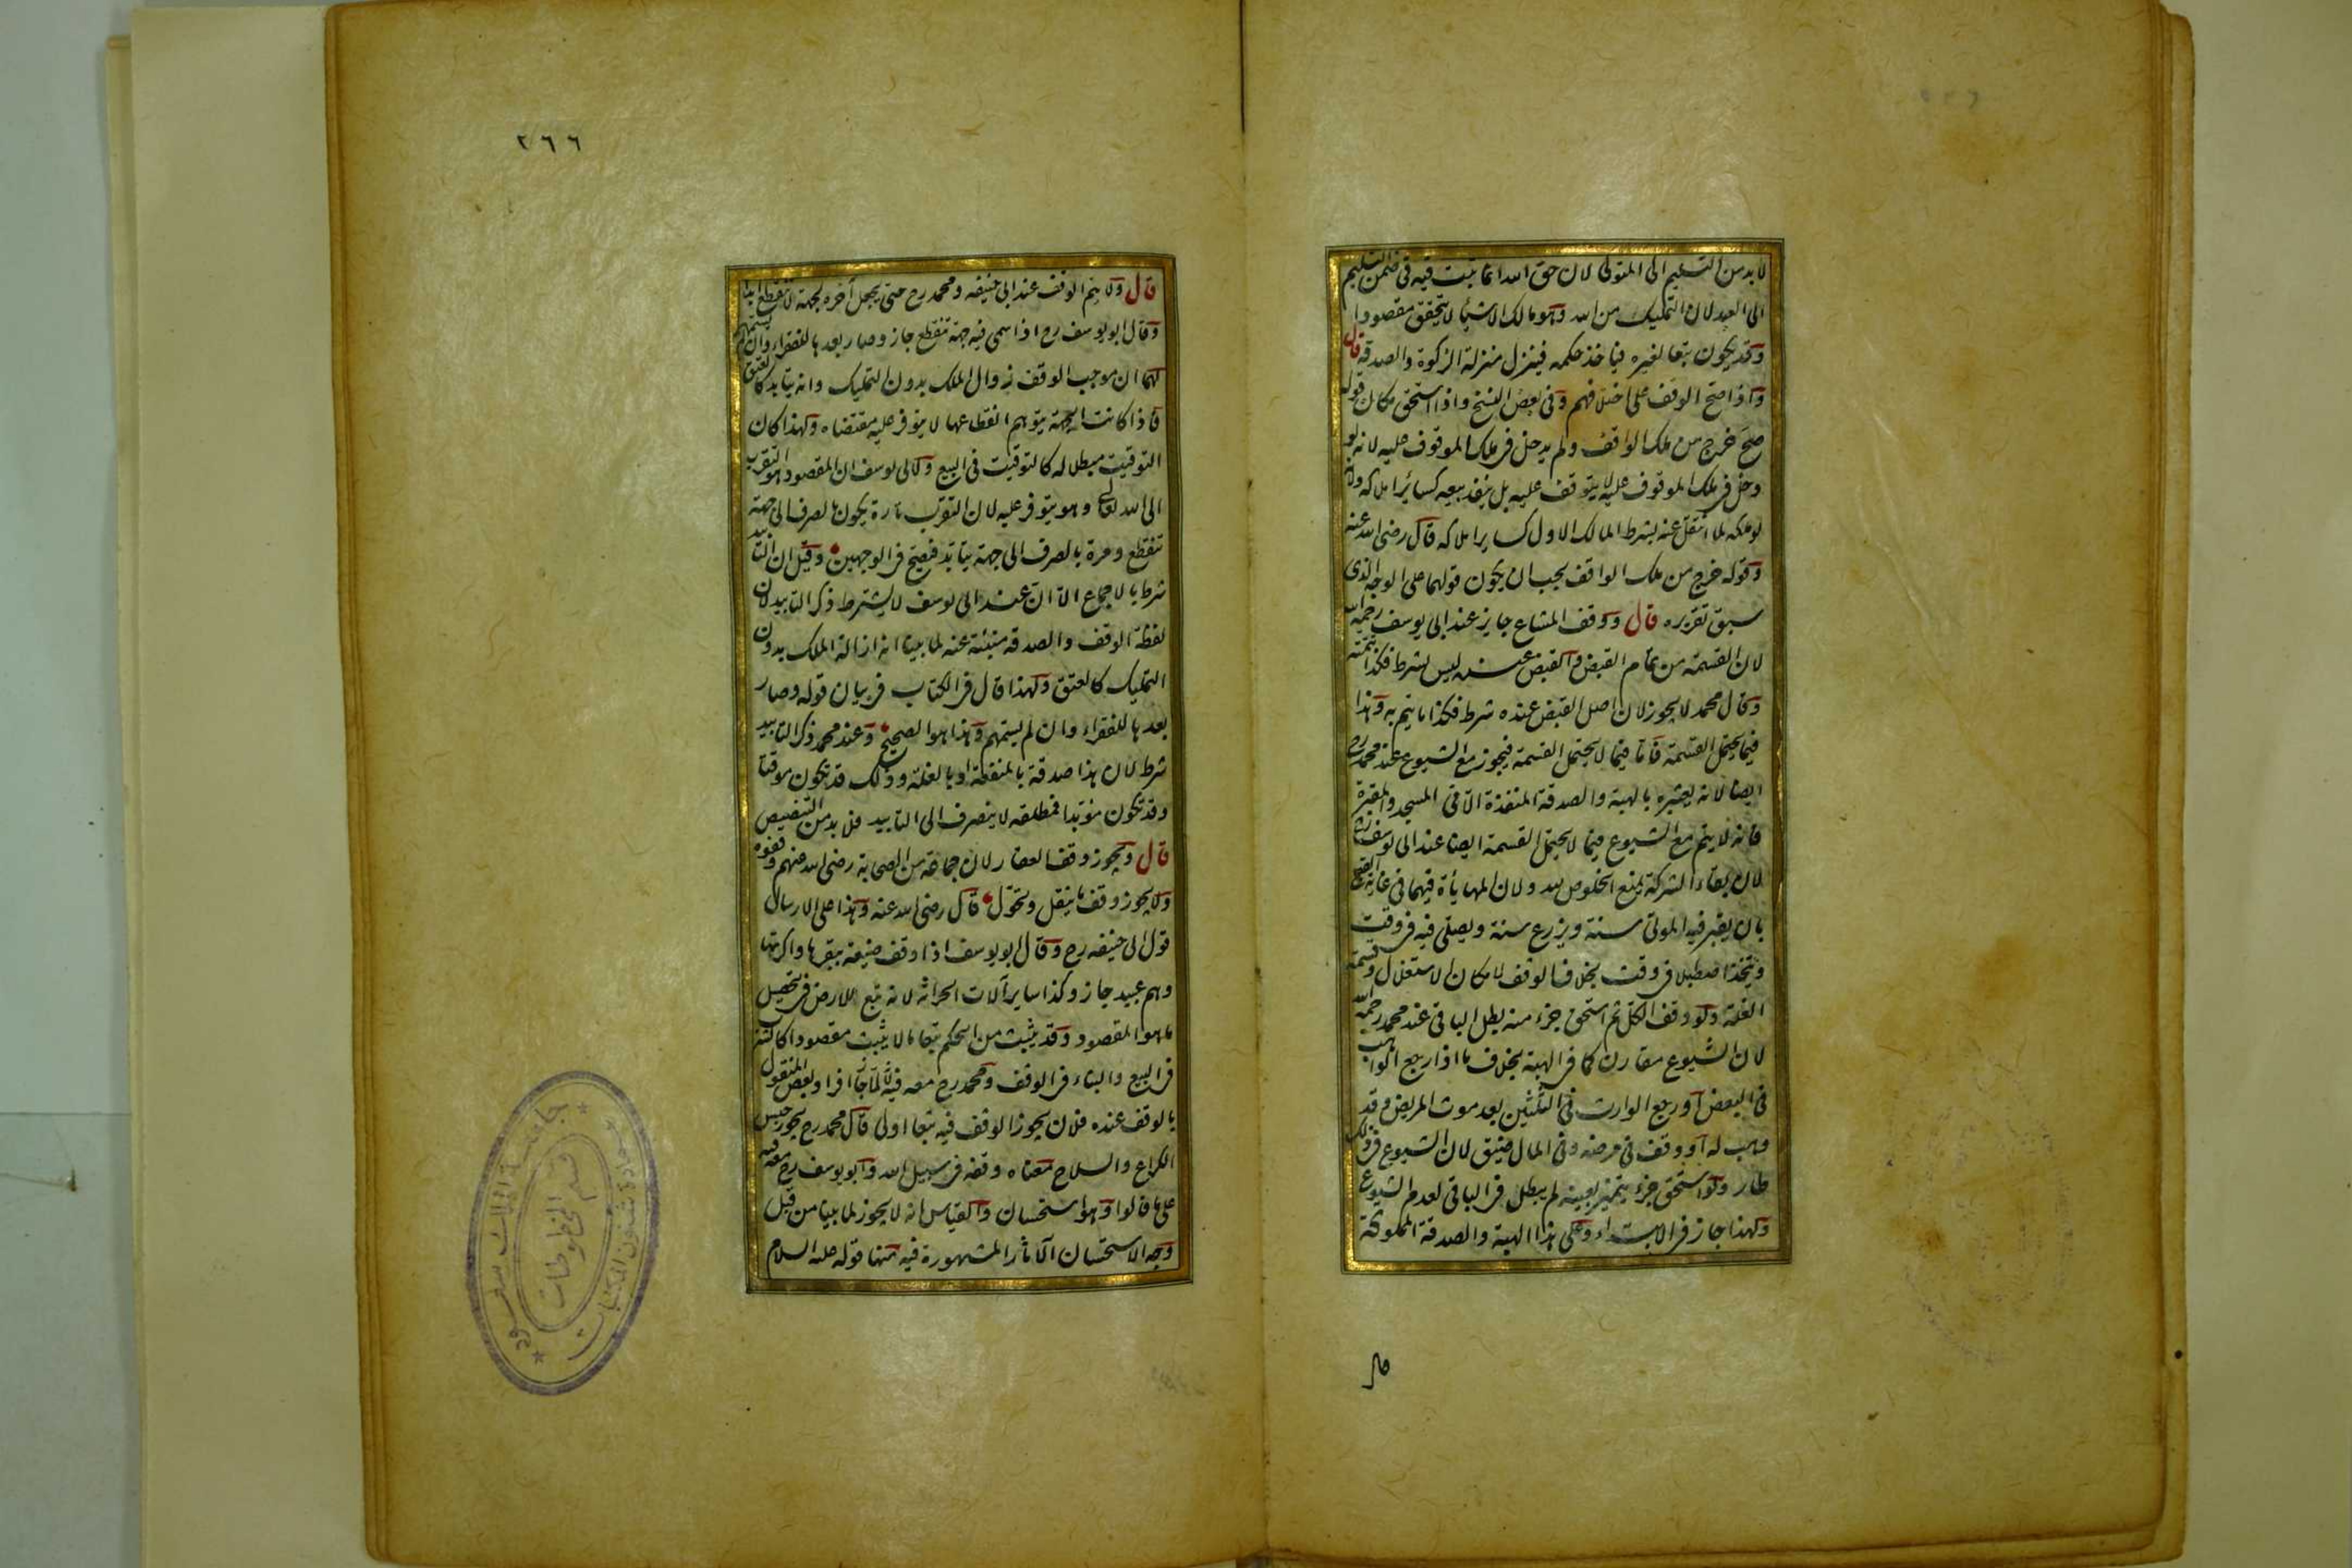 لا بد من التسليم الى المتولى لان حق الله انما يثبت فيه فى ضمن التسليم
الى العبد لان التمليك من الله وهو مالك الاشياء لا يتحقق مقصودا
وقد يكون تبعا لغيره فياخذ حكمه فينزل منزلة الزكوة والصدقة قال
واذا صح الوقف على اختلافهم وفى بعض النسخ واذا استحق مكان قوله
صح خرج من ملك الواقف ولم يدخل فى ملك الموقوف عليه لانه لو
دخل فى ملك الموقوف عليه لا يتوقف عليه بل ينفذ بيعه كسائر املاكه ولانه
لو ملكه لما انتقل عنه بشرط المالك الاول كساير املاكه قال رضى الله عنه
وقوله خرج من ملك الواقف يجب ان يكون قولهما على الوجه الذى
سبق تقريره قال ووقف المشاع جايز عند ابى يوسف رحمه الله
لان القسمة من تمام القبض والقبض عنده ليس بشرط فكذا تتمته
وقال محمد لا يجوز لان اصل القبض عنده شرط فكذا ما يتم به وهذا
فيما يحتمل القسمة فاما فيما لا يحتمل القسمة فيجوز مع الشيوع عند محمد رح
ايضا لانه يعتبره بالهبة والصدقة المنفذة الا فى المسجد والمقبرة
فانه لا يتم مع الشيوع فيما لا يحتمل القسمة ايضا عند ابى يوسف رح
لان بقاء الشركة يمنع الخلوص لله ولان المهايأة فيهما فى غاية القبح
بان يقبر فيه الموتى سنة ويزرع سنة ويصلى فيه فى وقت
ويتخذ اصطبلا فى وقت بخلاف الوقف لامكان الاستغلال وقسمة
الغلة ولو وقف الكل ثم استحق جزء منه بطل الباقى عند محمد رحمه الله
لان الشيوع مقارن كما فى الهبة بخلاف ما اذا رجع الواهب
فى البعض او رجع الوارث فى الثلثين بعد موت المريض وقد
وهب له او وقف فى مرضه وفى المال ضيق لان الشيوع فى ذلك
طار ولو استحق جزء يتميز بعينه لم يبطل فى الباقى لعدم الشيوع
ولهذا جاز فى الابتداء وعلى هذا الهبة والصدقة المملوكة
٢٦٦
قال ولا يتم الوقف عند ابى حنيفه ومحمد رح حتى يجعل آخره لجهة لا تنقطع ابدا
وقال ابو يوسف رح اذا سمى فيه جهة تنقطع جاز وصار بعدها للفقراء وان لم يسمهم
لهما ان موجب الوقف زوال الملك بدون التمليك وانه يتابد كالعتق
فاذا كانت الجهة يتوهم انقطاعها لا يتوفر عليه مقتضاه ولهذا كان
التوقيت مبطلا له كالتوقيت فى البيع ولابى يوسف ان المقصود هو التقرب
الى الله تعالى وهو يتوفر عليه لان التقرب تارة يكون بالصرف الى جهة
تنقطع ومرة بالصرف الى جهة يتابد فيصح فى الوجهين وقيل ان التابيد
شرط بالاجماع الا ان عند ابى يوسف لا يشترط ذكر التابيد لان
لفظة الوقف والصدقة منبئة عنه لما بينا انه ازالة الملك بدون
التمليك كالعتق ولهذا قال فى الكتاب فى بيان قوله وصار
بعدها للفقراء وان لم يسمهم وهذا هو الصحيح وعند محمد ذكر التابيد
شرط لان هذا صدقة بالمنفعة او بالغلة وذلك قد يكون موقتا
وقد تكون مؤبدا فمطلقه لا ينصرف الى التابيد فلا بد من التنصيص
قال ويجوز وقف العقار لان جماعة من الصحابة رضى الله عنهم وقفوه
ولا يجوز وقف ما ينقل ويحول قال رضى الله عنه وهذا على الارسال
قول ابى حنيفه رح وقال ابو يوسف اذا وقف ضيعة ببقرها واكرتها
وهم عبيد جاز وكذا ساير آلات الحراثة لانه تبع للارض فى تحصيل
ما هو المقصود وقد يثبت من الحكم تبعا ما لا يثبت مقصودا كالشرب
فى البيع والبناء فى الوقف ومحمد رح معه فيه لانه لما جاز افراد بعض المنقول
بالوقف عنده فلان يجوز الوقف فيه تبعا اولى قال محمد رح يجوز حبس
الكراع والسلاح معناه وقفه فى سبيل الله وابو يوسف رح معه فيه
على ما قالوا وهو استحسان والقياس انه لا يجوز لما بينا من قبل
وجه الاستحسان الآثار المشهورة فيه منها قوله عليه السلام
جامعة الملك سعود
عمادة شئون المكتبات
قسم المخطوطات